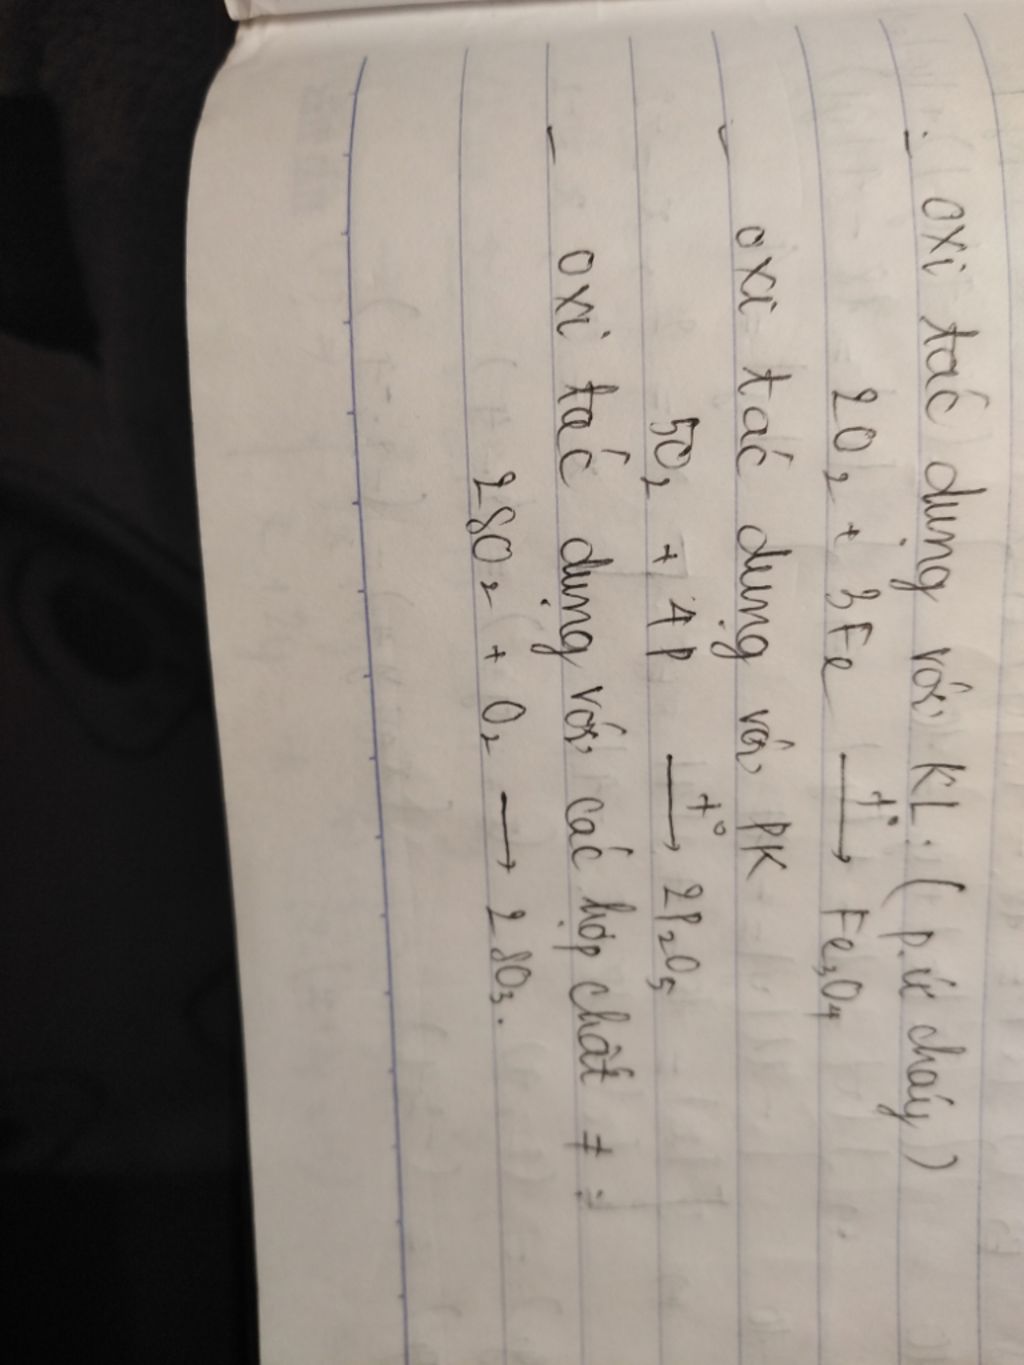 - oxi tác dụng với KL. (p.ứ cháy)
2O₂ + 3Fe —t°→ Fe₃O₄
- oxi tác dụng với PK
5O₂ + 4P —t°→ 2P₂O₅
- oxi tác dụng với các hợp chất ≠ :
2SO₂ + O₂ ⟶ 2SO₃.